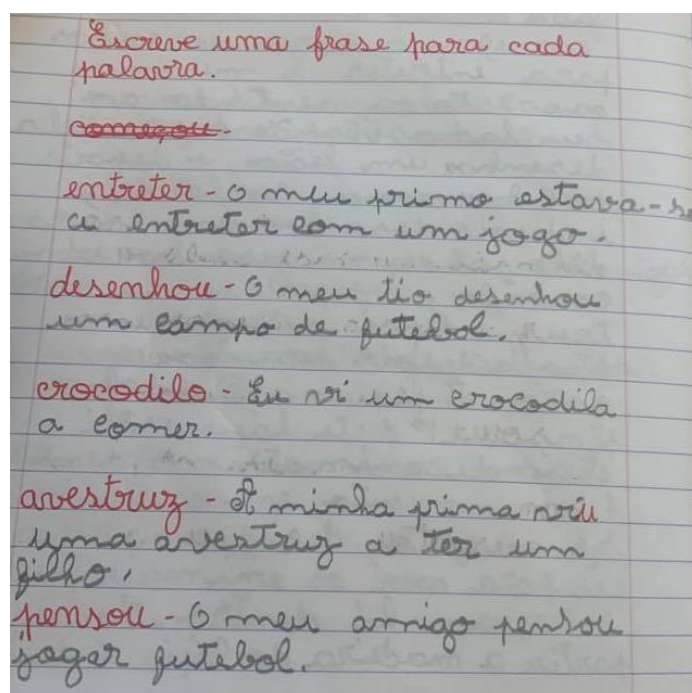 Escreve uma frase para cada
palavra.
começou-
entreter - O meu primo estava-se
a entreter com um jogo.
desenhou - O meu tio desenhou
um campo de futebol.
crocodilo - Eu vi um crocodila
a comer.
avestruz - A minha prima viu
uma avestruz a ter um
filho.
pensou - O meu amigo pensou
jogar futebol.